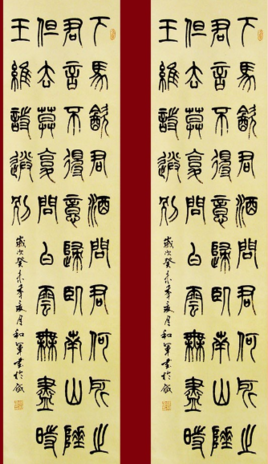 下馬飲君酒問君何所之
君言不得意歸臥南山陲
但去莫復問白雲無盡時
王維詩送別
歲次癸未年夏月和軍書於
下馬飲君酒問君何所之
君言不得意歸臥南山陲
但去莫復問白雲無盡時
王維詩送別
歲次癸未年夏月和軍書於